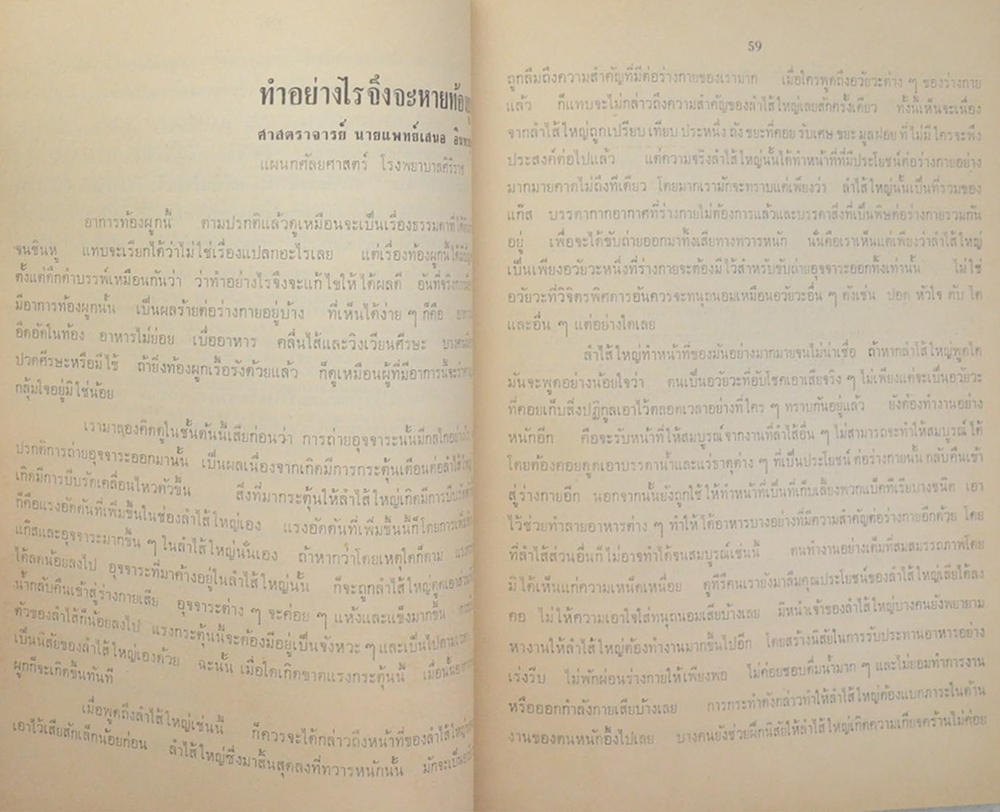 ทำอย่างไรจึงจะหายท้อง
ศาสตราจารย์ นายแพทย์เสนอ
แผนกศัลยศาสตร์ โรงพยาบาลศิริราช
อาการท้องผูกนี้ ตามปรกติแล้วดูเหมือนจะเป็นเรื่องธรรมดาที่ได้
จนชินหู แทบจะเรียกได้ว่าไม่ใช่เรื่องแปลกอะไรเลย แต่เรื่องท้องผูกได้มี
ตั้งแต่ดึกดำบรรพ์เหมือนกันว่า ว่าทำอย่างไรจึงจะแก้ไขให้ได้ผลดี อันที่จริง
มีอาการท้องผูกนั้น เป็นผลร้ายต่อร่างกายอยู่บ้าง ที่เห็นได้ง่าย ๆ ก็คือ
อึดอัดในท้อง อาหารไม่ย่อย เบื่ออาหาร คลื่นไส้และวิงเวียนศีรษะ บาง
ปวดศีรษะหรือมีไข้ ถ้ายิ่งท้องผูกเรื้อรังด้วยแล้ว ก็ดูเหมือนผู้ที่มีอาการนี้จะ
กลุ้มใจอยู่มิใช่น้อย
เรามาลองคิดดูในชั้นต้นนี้เสียก่อนว่า การถ่ายอุจจาระนั้นมีกลไกอย่างไร
ปรกติการถ่ายอุจจาระออกมานั้น เป็นผลเนื่องจากเกิดมีการกระตุ้นเตือนต่อลำไส้
เกิดมีการบีบรัดเคลื่อนไหวตัวขึ้น สิ่งที่มากระตุ้นให้ลำไส้ใหญ่เกิดมีการบีบรัด
ก็คือแรงอัดดันที่เพิ่มขึ้นในช่องลำไส้ใหญ่เอง แรงอัดดันที่เพิ่มขึ้นนี้ก็โดยการ
แก๊สและอุจจาระมากขึ้น ๆ ในลำไส้ใหญ่นั่นเอง ถ้าหากว่าโดยเหตุใดก็ตาม
ได้ลดน้อยลงไป อุจจาระที่มาค้างอยู่ในลำไส้ใหญ่นั้น ก็จะถูกลำไส้ใหญ่ดูดเอา
น้ำกลับคืนเข้าสู่ร่างกายเสีย อุจจาระต่าง ๆ จะค่อย ๆ แห้งและแข็งมากขึ้น
ตัวของลำไส้ก็น้อยลงไป แรงกระตุ้นนี้จะต้องมีอยู่เป็นจังหวะ ๆ และเป็นไปตาม
เป็นนิสัยของลำไส้ใหญ่เองด้วย ฉะนั้น เมื่อใดเกิดขาดแรงกระตุ้นนี้ เมื่อนั้น
ผูกก็จะเกิดขึ้นทันที
เมื่อพูดถึงลำไส้ใหญ่เช่นนี้ ก็ควรจะได้กล่าวถึงหน้าที่ของลำไส้ใหญ่
เอาไว้เสียสักเล็กน้อยก่อน ลำไส้ใหญ่ซึ่งมาสิ้นสุดลงที่ทวารหนักนั้น มักจะเป็น
59
ถูกลืมถึงความสำคัญที่มีต่อร่างกายของเรามาก เมื่อใครพูดถึงอวัยวะต่าง ๆ ของร่างกาย
แล้ว ก็แทบจะไม่กล่าวถึงความสำคัญของลำไส้ใหญ่เลยสักครั้งเดียว ทั้งนี้เห็นจะเนื่อง
จากลำไส้ใหญ่ถูกเปรียบเทียบประหนึ่งถังขยะที่คอยรับเศษขยะมูลฝอยที่ไม่มีใครจะพึง
ประสงค์ต่อไปแล้ว แต่ความจริงลำไส้ใหญ่นั้นได้ทำหน้าที่ที่มีประโยชน์ต่อร่างกายอย่าง
มากมายคาดไม่ถึงทีเดียว โดยมากเรามักจะทราบแต่เพียงว่า ลำไส้ใหญ่นั้นเป็นที่รวมของ
แก๊ส บรรดากากอากาศที่ร่างกายไม่ต้องการแล้วและบรรดาสิ่งที่เป็นพิษต่อร่างกายรวมกัน
อยู่ เพื่อจะได้ขับถ่ายออกมาทิ้งเสียทางทวารหนัก นั่นคือเราเห็นแต่เพียงว่าลำไส้ใหญ่
เป็นเพียงอวัยวะหนึ่งที่ร่างกายจะต้องมีไว้สำหรับขับถ่ายอุจจาระออกทิ้งเท่านั้น ไม่ใช่
อวัยวะที่วิจิตรพิศดารอันควรจะทนุถนอมเหมือนอวัยวะอื่น ๆ ดังเช่น ปอด หัวใจ ตับ ไต
และอื่น ๆ แต่อย่างใดเลย
ลำไส้ใหญ่ทำหน้าที่ของมันอย่างมากมายจนไม่น่าเชื่อ ถ้าหากลำไส้ใหญ่พูดได้
มันจะพูดอย่างน้อยใจว่า ตนเป็นอวัยวะที่อับโชคเอาเสียจริง ๆ ไม่เพียงแต่จะเป็นอวัยวะ
ที่คอยเก็บสิ่งปฏิกูลเอาไว้ตลอดเวลาอย่างที่ใคร ๆ ทราบกันอยู่แล้ว ยังต้องทำงานอย่าง
หนักอีก คือจะรับหน้าที่ให้สมบูรณ์จากงานที่ลำไส้อื่น ๆ ไม่สามารถจะทำให้สมบูรณ์ได้
โดยต้องคอยดูดเอาบรรดาน้ำและแร่ธาตุต่าง ๆ ที่เป็นประโยชน์ต่อร่างกายนั้นกลับคืนเข้า
สู่ร่างกายอีก นอกจากนั้นยังถูกใช้ให้ทำหน้าที่เป็นที่เก็บเลี้ยงพวกแบ็คทีเรียบางชนิด เอา
ไว้ช่วยทำลายอาหารต่าง ๆ ทำให้ได้อาหารบางอย่างที่มีความสำคัญต่อร่างกายอีกด้วย โดย
ที่ลำไส้ส่วนอื่นก็ไม่อาจทำได้จนสมบูรณ์เช่นนี้ ตนทำงานอย่างเต็มที่สมสมรรถภาพโดย
มิได้เห็นแก่ความเหน็ดเหนื่อย ดูทีรึคนเรายังมาลืมคุณประโยชน์ของลำไส้ใหญ่เสียได้ลง
คอ ไม่ให้ความเอาใจใส่ทนุถนอมเสียบ้างเลย มิหนำเจ้าของลำไส้ใหญ่บางคนยังพยายาม
หางานให้ลำไส้ใหญ่ต้องทำงานมากขึ้นไปอีก โดยสร้างนิสัยในการรับประทานอาหารอย่าง
เร่งรีบ ไม่พักผ่อนร่างกายให้เพียงพอ ไม่ค่อยชอบดื่มน้ำมาก ๆ และไม่ยอมทำการงาน
หรือออกกำลังกายเสียบ้างเลย การกระทำดังกล่าวทำให้ลำไส้ใหญ่ต้องแบกภาระในด้าน
งานของตนหนักอึ้งไปเลย บางคนยังช่วยฝึกนิสัยให้ลำไส้ใหญ่เกิดความเกียจคร้านไม่ค่อย